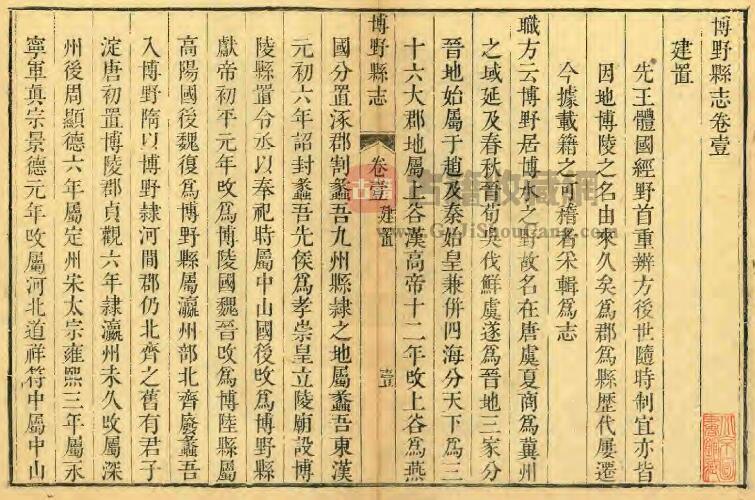 博野縣志卷壹
建置
先王體國經野首重辨方後世隨時制宜亦皆
因地博陵之名由來久矣為郡為縣歷代屢遷
今據載籍之可稽者采輯為志
職方云博野居博水之野故名在唐虞夏商為冀州
之域延及春秋晉荀吳伐鮮虞遂為晉地三家分
晉地始屬于趙及秦始皇兼併四海分天下為三
十六大郡地屬上谷漢高帝十二年攺上谷為燕
博野縣志
卷壹
建置
壹
國分置涿郡割蠡吾九州縣隸之地屬蠡吾東漢
元初六年詔封蠡吾先侯為孝崇皇立陵廟設博
陵縣置令丞以奉祀時屬中山國後攺為博野縣
獻帝初平元年攺為博陵國魏晉攺為博陸縣屬
高陽國後魏復為博野縣屬瀛州部北齊廢蠡吾
入博野隋以博野隸河間郡仍北齊之舊有君子
淀唐初置博陵郡貞觀六年隸瀛州未久攺屬深
州後周顯德六年屬定州宋太宗雍熙三年屬永
寧軍真宗景德元年攺屬河北道祥符中屬中山
古籍收藏網
www.GuJiShouCang.com